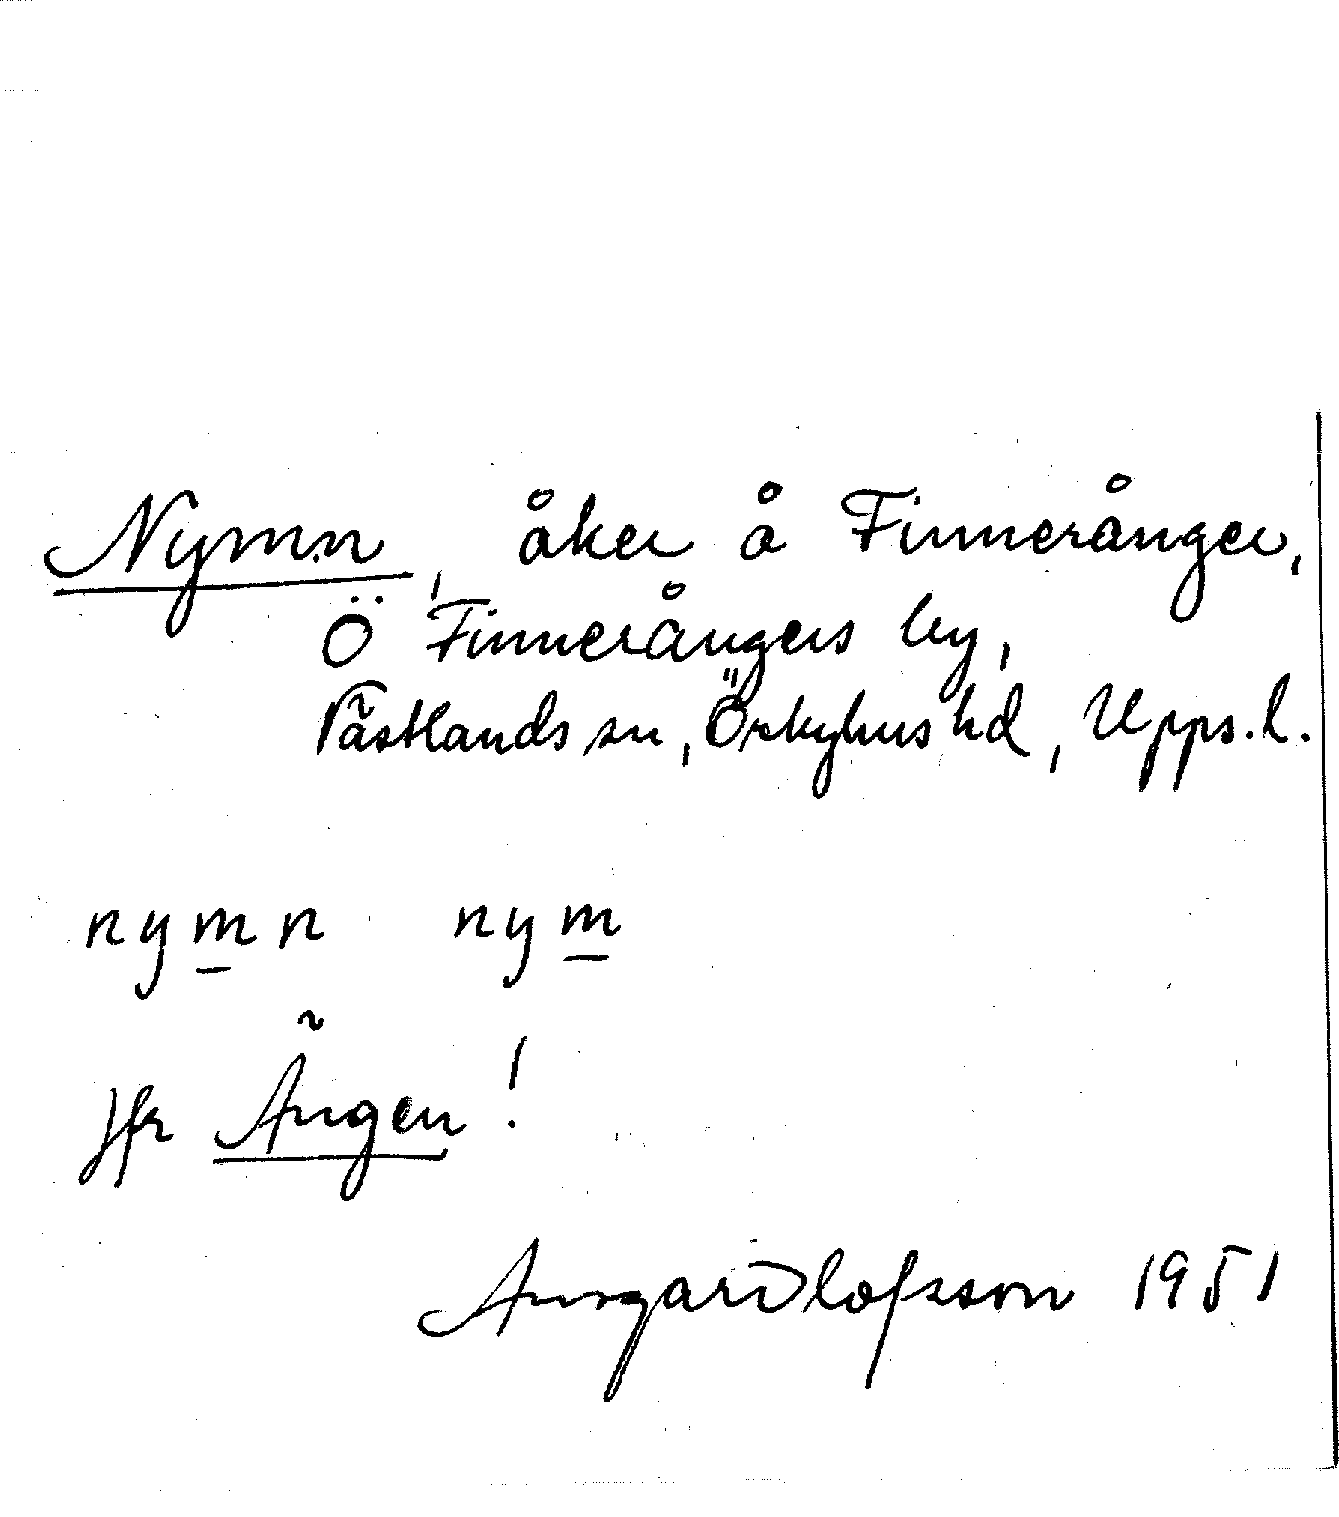 Nymn, åker å Finnerånger,
Ö Finnerångers by,
Västlands sn, Örbyhus hd, Upps.l.
nymn nym
Jfr Ängen!
Ansgar Olofsson 1951